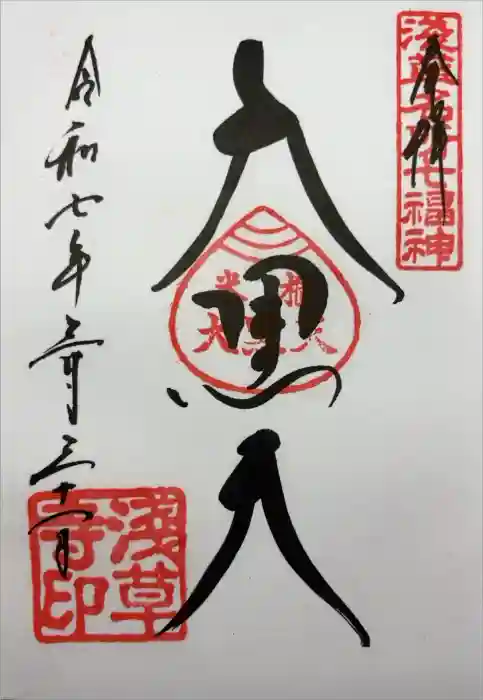 淺草名所七福神
奉拝
大黒天
令和七年三月三十一日
淺草寺印